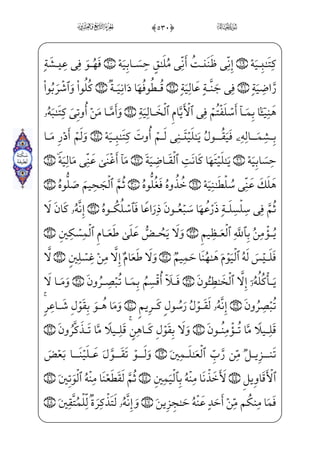 كِتَٰبِيَهْ ۝ إِنِّى ظَنَنتُ أَنِّى مُلَٰقٍ حِسَابِيَهْ ۝ فَهُوَ فِى عِيشَةٍ
رَّاضِيَةٍ ۝ فِى جَنَّةٍ عَالِيَةٍ ۝ قُطُوفُهَا دَانِيَةٌ ۝ كُلُوا۟ وَٱشْرَبُوا۟
هَنِيٓـًٔۢا بِمَآ أَسْلَفْتُمْ فِى ٱلْأَيَّامِ ٱلْخَالِيَةِ ۝ وَأَمَّا مَنْ أُوتِىَ كِتَٰبَهُۥ
بِشِمَالِهِۦ فَيَقُولُ يَٰلَيْتَنِى لَمْ أُوتَ كِتَٰبِيَهْ ۝ وَلَمْ أَدْرِ مَا
حِسَابِيَهْ ۝ يَٰلَيْتَهَا كَانَتِ ٱلْقَاضِيَةَ ۝ مَآ أَغْنَىٰ عَنِّى مَالِيَهْ ۝
هَلَكَ عَنِّى سُلْطَٰنِيَهْ ۝ خُذُوهُ فَغُلُّوهُ ۝ ثُمَّ ٱلْجَحِيمَ صَلُّوهُ ۝
ثُمَّ فِى سِلْسِلَةٍ ذَرْعُهَا سَبْعُونَ ذِرَاعًا فَٱسْلُكُوهُ ۝ إِنَّهُۥ كَانَ لَا
يُؤْمِنُ بِٱللَّهِ ٱلْعَظِيمِ ۝ وَلَا يَحُضُّ عَلَىٰ طَعَامِ ٱلْمِسْكِينِ ۝
فَلَيْسَ لَهُ ٱلْيَوْمَ هَٰهُنَا حَمِيمٌ ۝ وَلَا طَعَامٌ إِلَّا مِنْ غِسْلِينٍ ۝ لَّا
يَأْكُلُهُۥٓ إِلَّا ٱلْخَٰطِـُٔونَ ۝ فَلَآ أُقْسِمُ بِمَا تُبْصِرُونَ ۝ وَمَا لَا
تُبْصِرُونَ ۝ إِنَّهُۥ لَقَوْلُ رَسُولٍ كَرِيمٍ ۝ وَمَا هُوَ بِقَوْلِ شَاعِرٍ ۚ
قَلِيلًا مَّا تُؤْمِنُونَ ۝ وَلَا بِقَوْلِ كَاهِنٍ ۚ قَلِيلًا مَّا تَذَكَّرُونَ ۝
تَنزِيلٌ مِّن رَّبِّ ٱلْعَٰلَمِينَ ۝ وَلَوْ تَقَوَّلَ عَلَيْنَا بَعْضَ
ٱلْأَقَاوِيلِ ۝ لَأَخَذْنَا مِنْهُ بِٱلْيَمِينِ ۝ ثُمَّ لَقَطَعْنَا مِنْهُ ٱلْوَتِينَ ۝
فَمَا مِنكُم مِّنْ أَحَدٍ عَنْهُ حَٰجِزِينَ ۝ وَإِنَّهُۥ لَتَذْكِرَةٌ لِّلْمُتَّقِينَ ۝